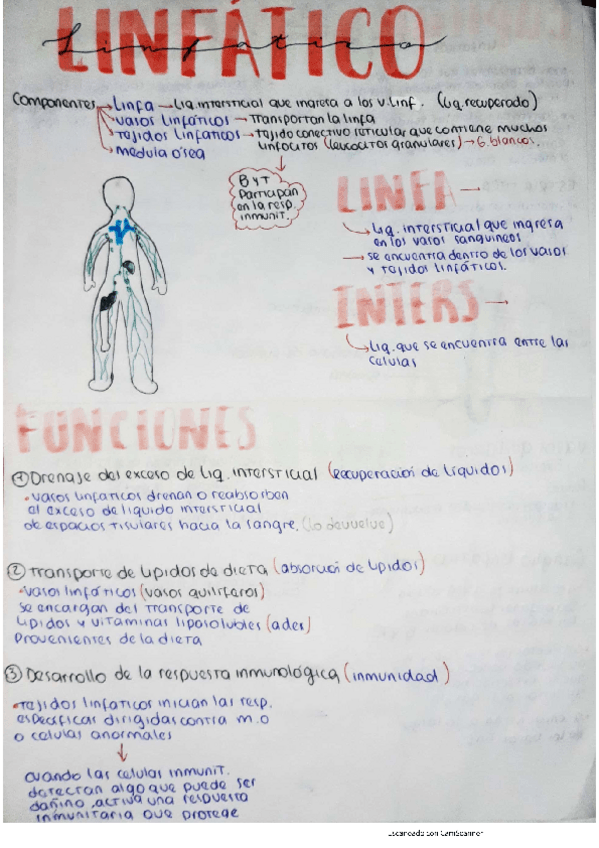 LINFÁTICO
Linfatico
Componentes → Linfa → Liq. intersticial que ingresa a los v. linf. (liq. recuperado)
→ vasos linfáticos → transportan la linfa
→ Tejidos linfaticos → tejido conectivo reticular que contiene muchos
linfocitos (leucocitos granulares) → G. blancos.
→ medula osea
B y T
Participan
en la resp.
inmunit.
LINFA →
→ Liq. intersticial que ingresa
en los vasos sanguineos
→ se encuentra dentro de los vasos
y tejidos linfáticos.
INTERS →
→ Liq. que se encuentra entre las
celulas
FUNCIONES
① Drenaje del exceso de liq. intersticial (recuperación de líquidos)
• vasos linfaticos drenan o reabsorben
el exceso de liquido intersticial
de espacios tisulares hacia la sangre. (lo devuelve)
② Transporte de lipidos de dieta (absorción de lipidos)
• vasos linfáticos (vasos quiliferos)
se encargan del transporte de
lipidos y vitaminas liposolubles (adek)
provenientes de la dieta
③ Desarrollo de la respuesta inmunológica (inmunidad)
• Tejidos linfaticos inician las resp.
especificas dirigidas contra m.o
o celulas anormales
cuando las celulas inmunit.
detectan algo que puede ser
dañino, activa una respuesta
inmunitaria que protege
Escaneado con CamScanner